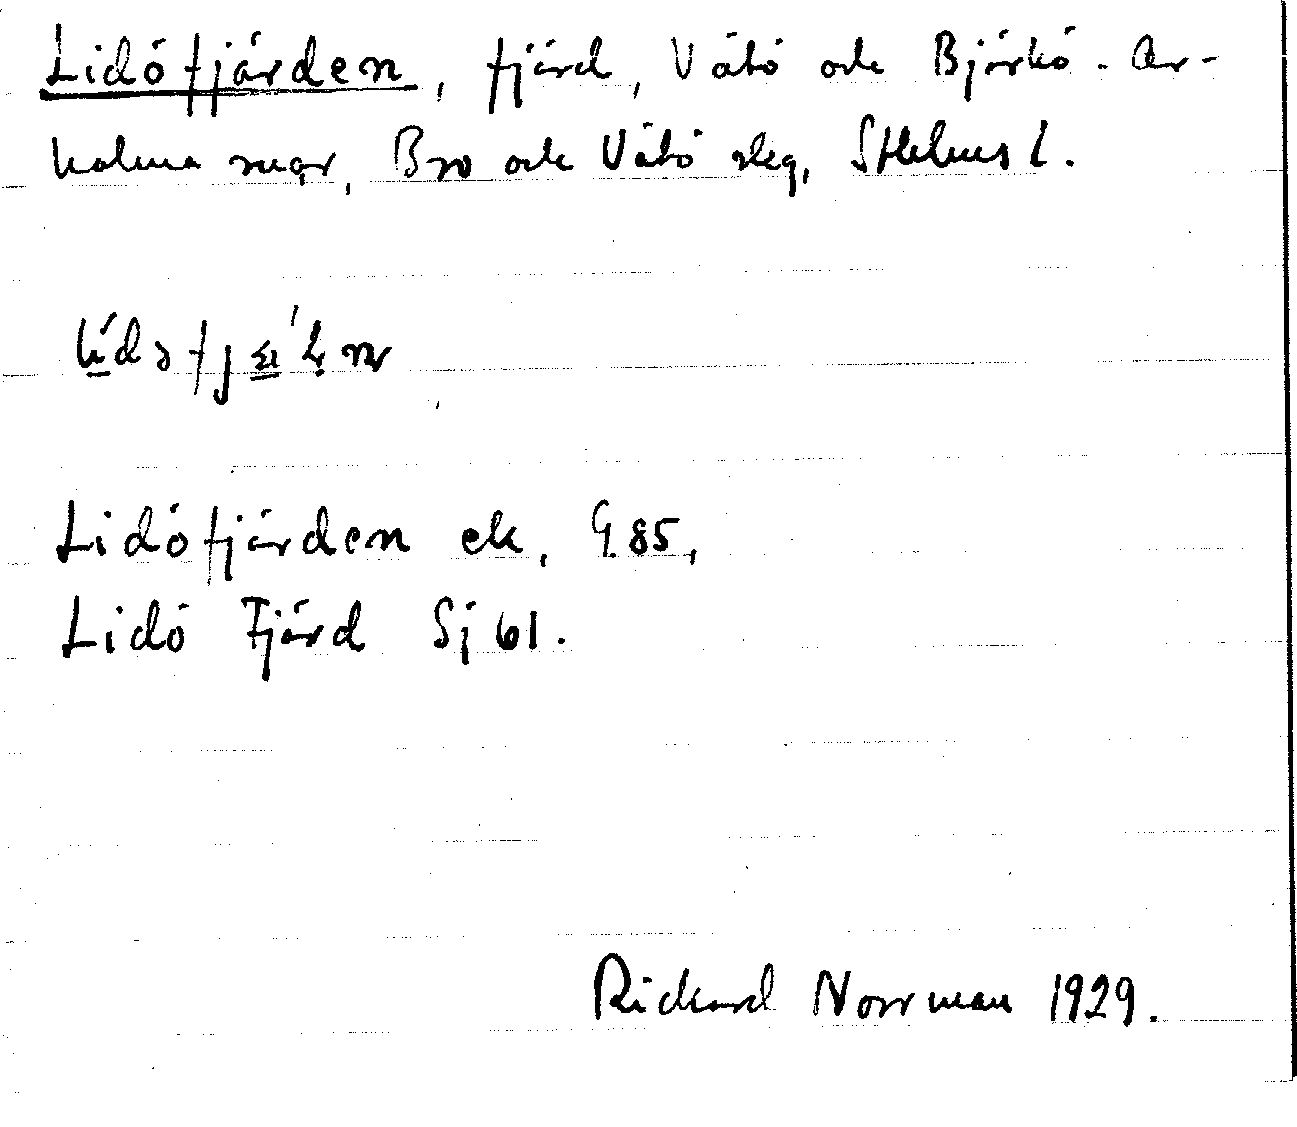 Lidöfjärden, fjärd, Vätö och Björkö-Ar-
holma snar, Bro och Vätö slg, Sthlms l.
Lidöfjärden ek, G.85,
Lidö Fjärd Sj 61.
Rickard Norrman 1929.